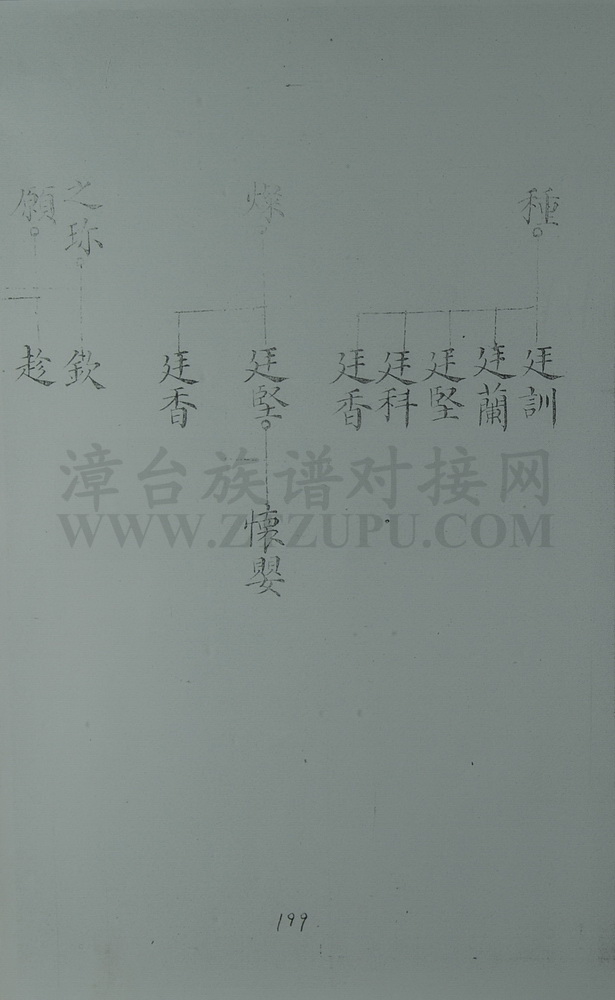 種
燦
之珎
願
廷訓
廷蘭
廷堅
廷科
廷香
廷堅
廷香
欽
趁
懷嬰
漳台族谱对接网
WWW.ZTZUPU.COM
199